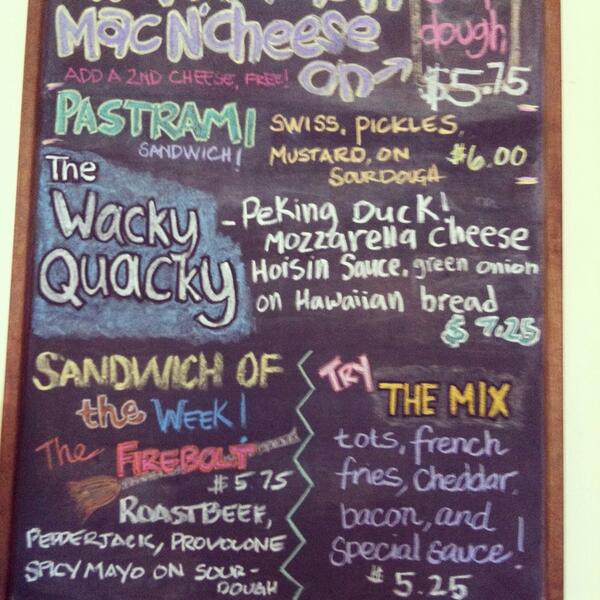 Mac N'Cheese
dough,
ADD A 2ND CHEESE, FREE!
on → $5.75
PASTRAMI
SANDWICH!
SWISS, PICKLES,
MUSTARD, ON $6.00
SOURDOUGH
The
Wacky
Quacky
- Peking Duck!
Mozzarella cheese
Hoisin Sauce, green onion
on Hawaiian bread
$ 7.25
SANDWICH OF
the WEEK!
The FIREBOLT
$5.75
ROASTBEEF,
PEPPERJACK, PROVOLONE
SPICY MAYO ON SOUR-
DOUGH
TRY
THE MIX
tots, french
fries, cheddar,
bacon, and
special sauce!
$5.25